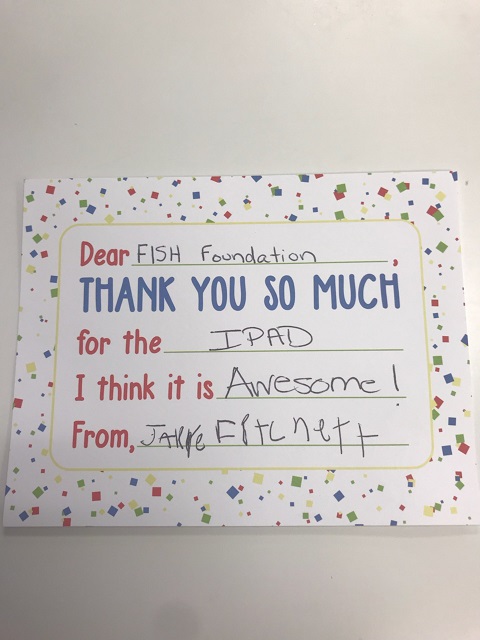 Dear FISH Foundation,
THANK YOU SO MUCH
for the IPAD
I think it is Awesome!
From,